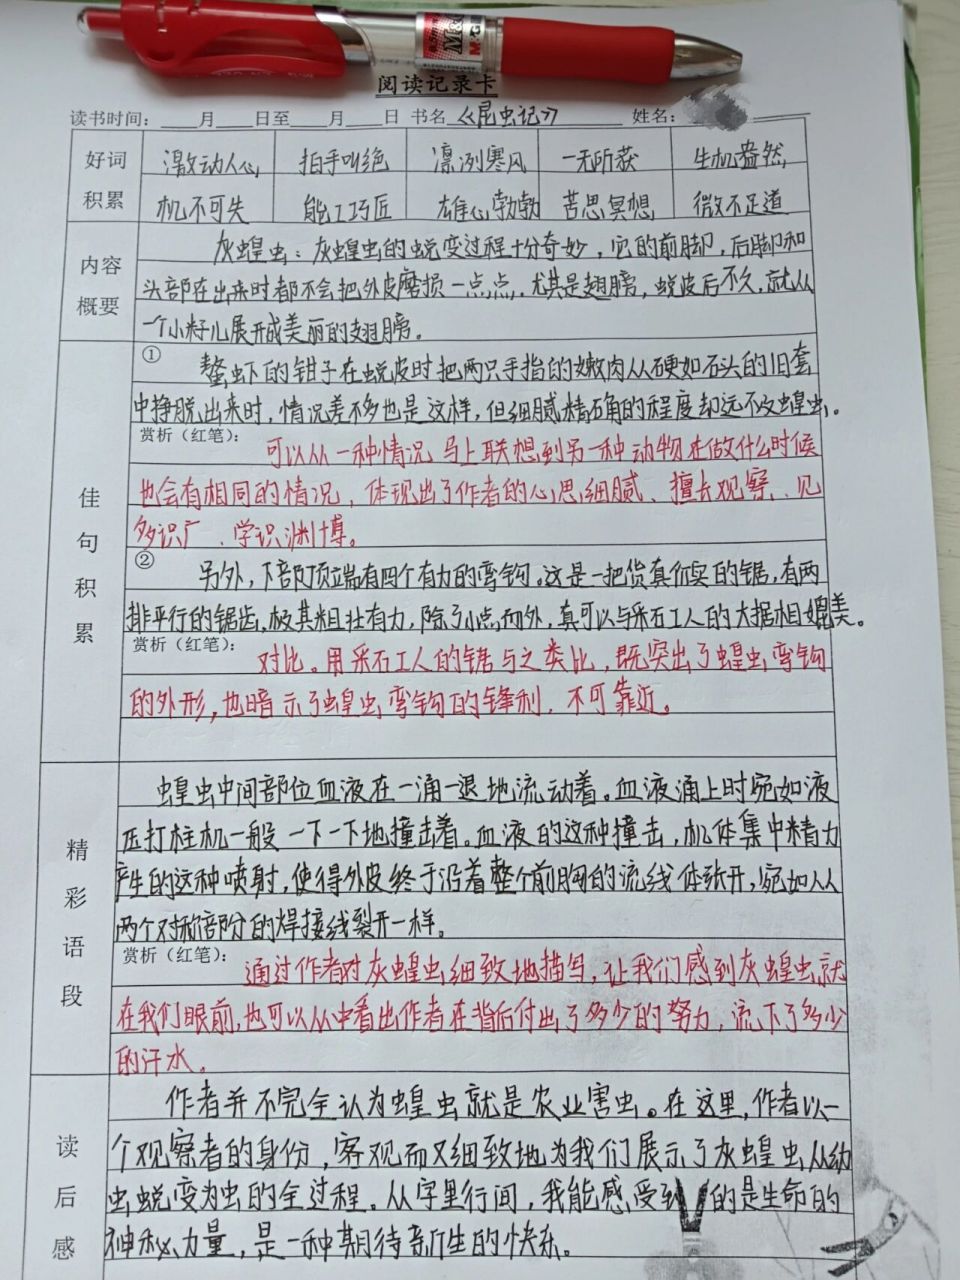 M&G
M&G
阅读记录卡
读书时间：____月____日至____月____日 书名 《昆虫记》 姓名：
好词积累
激动人心 拍手叫绝 凛冽寒风 一无所获 生机盎然
机不可失 能工巧匠 雄心勃勃 苦思冥想 微不足道
内容概要
灰蝗虫：灰蝗虫的蜕变过程十分奇妙，它的前脚，后脚和
头部在出来时都不会把外皮磨损一点点，尤其是翅膀，蜕皮后不久，就从
一个小籽儿展开成美丽的翅膀。
佳句积累
①
螯虾下的钳子在蜕皮时把两只手指的嫩肉从硬如石头的旧套
中挣脱出来时，情况差不多也是这样，但细腻精确的程度却远不及蝗虫。
赏析（红笔）：
可以从一种情况马上联想到另一种动物在做什么时候
也会有相同的情况，体现出了作者的心思细腻、擅长观察、见
多识广、学识渊博。
②
另外，下部顶端有四个有力的弯钩。这是一把货真价实的锯，有两
排平行的锯齿，极其粗壮有力，除了小点而外，真可以与采石工人的大据相媲美。
赏析（红笔）：
对比。用采石工人的锯与之类比，既突出了蝗虫弯钩
的外形，也暗示了蝗虫弯钩的锋利，不可靠近。
精彩语段
蝗虫中间部位血液在一涌一退地流动着。血液涌上时宛如液
压打桩机一般一下一下地撞击着。血液的这种撞击，机体集中精力
产生的这种喷射，使得外皮终于沿着整个前胸的流线体张开，宛如从
两个对称部份的焊接线裂开一样。
赏析（红笔）：
通过作者对灰蝗虫细致地描写，让我们感到灰蝗虫就
在我们眼前，也可以从中看出作者在背后付出了多少的努力，流下了多少
的汗水。
读后感
作者并不完全认为蝗虫就是农业害虫。在这里，作者以一
个观察者的身份，客观而又细致地为我们展示了灰蝗虫从幼
虫蜕变为虫的全过程。从字里行间，我能感受到的是生命的
神秘力量，是一种期待新生的快乐。